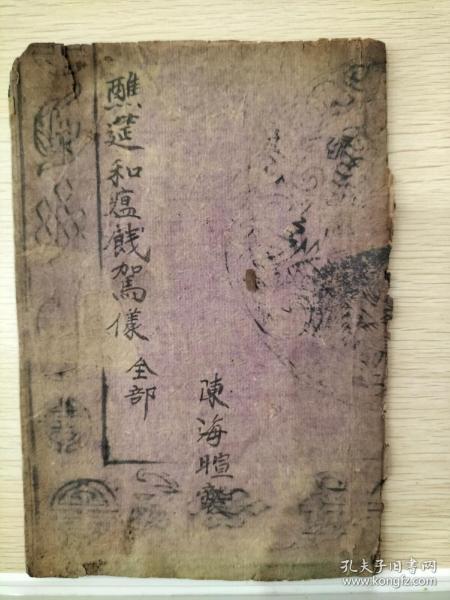 醮筵和瘟餞駕儀
全部
陳海暄
孔夫子旧书网
www.kongfz.com